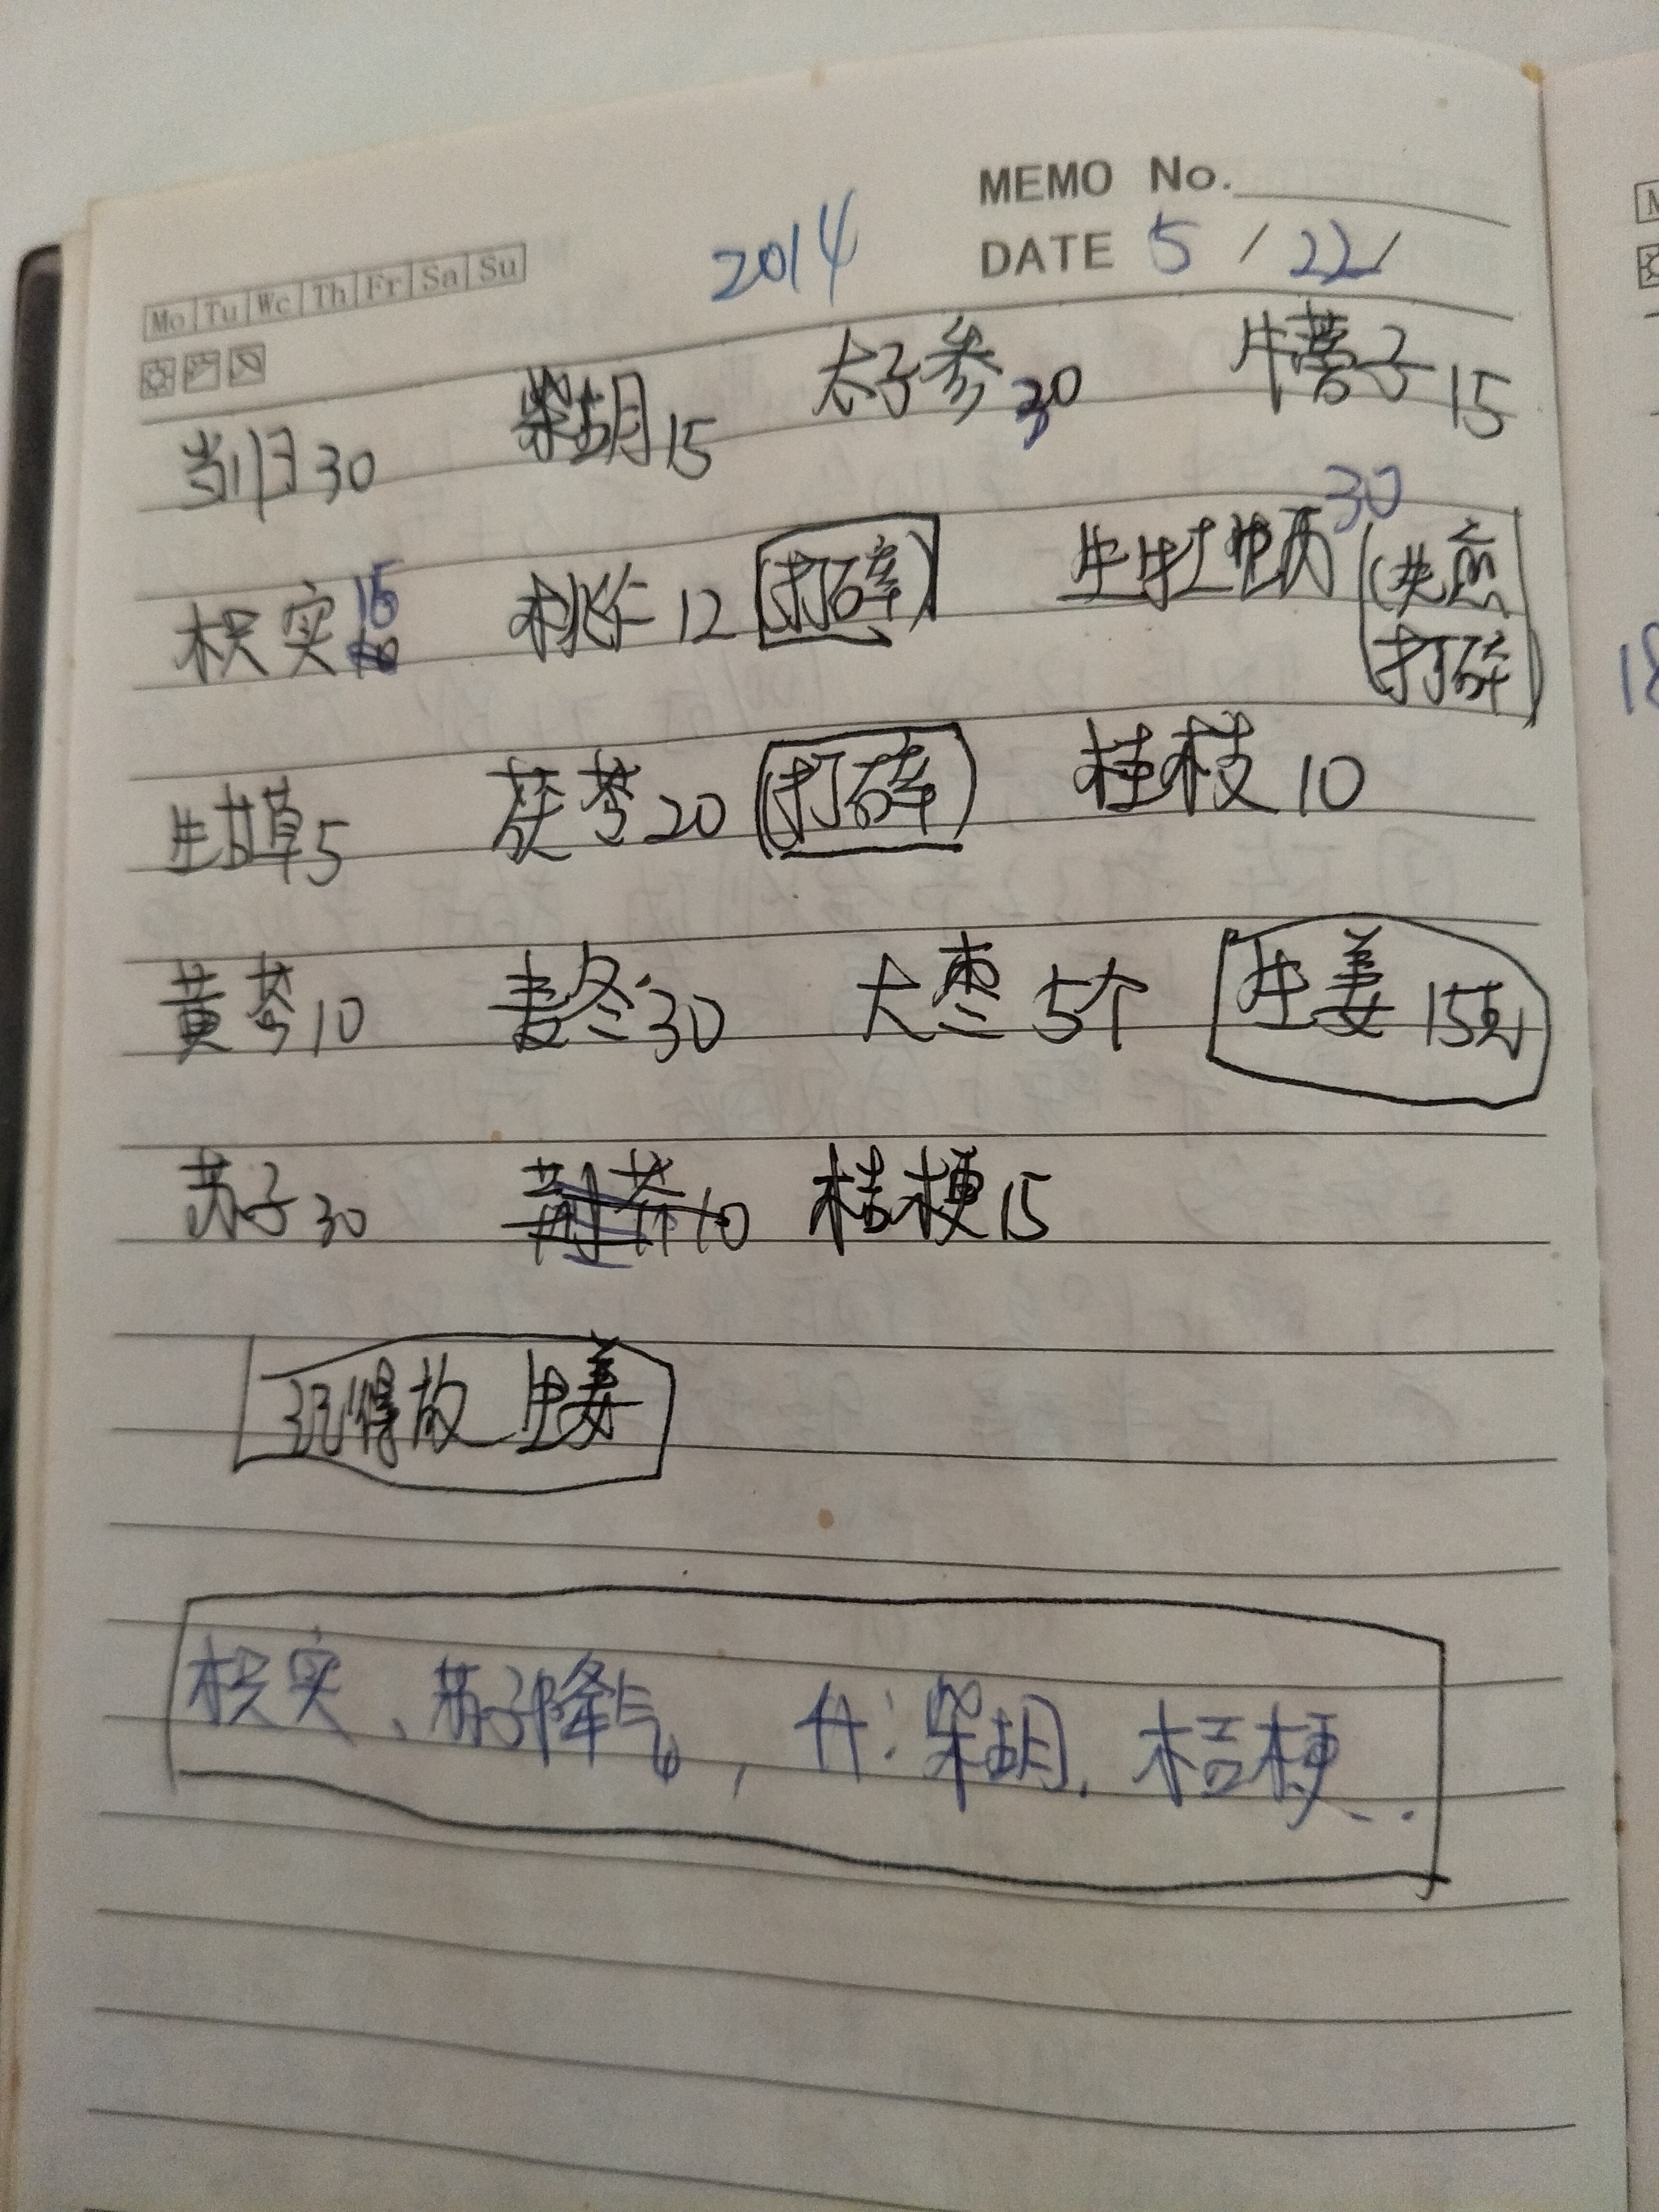 MEMO No.
2014 DATE 5 / 22 /
Mo Tu We Th Fr Sa Su
当归30 柴胡15 太子参30 牛蒡子15
枳实15 桃仁12 (打碎) 生牡蛎30 (先煎 打碎)
生甘草5 茯苓20 (打碎) 桂枝10
黄芩10 麦冬30 大枣5个 生姜15克
苏子30 荆芥10 桔梗15
记得放生姜
枳实、苏子降气, 升:柴胡、桔梗..
18